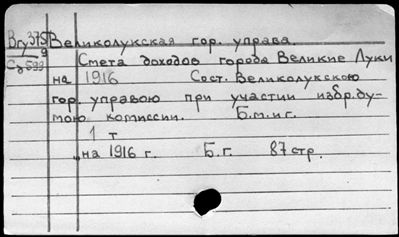 Вгу375 Великолукская гор. управа.
9
Су599 Смета доходов города Великие Луки
на 1916 Сост. Великолукскою
гор. управою при участии избр. ду-
мою комиссии. Б.м.и г.
1 т
„на 1916 г. Б.г. 87 стр.